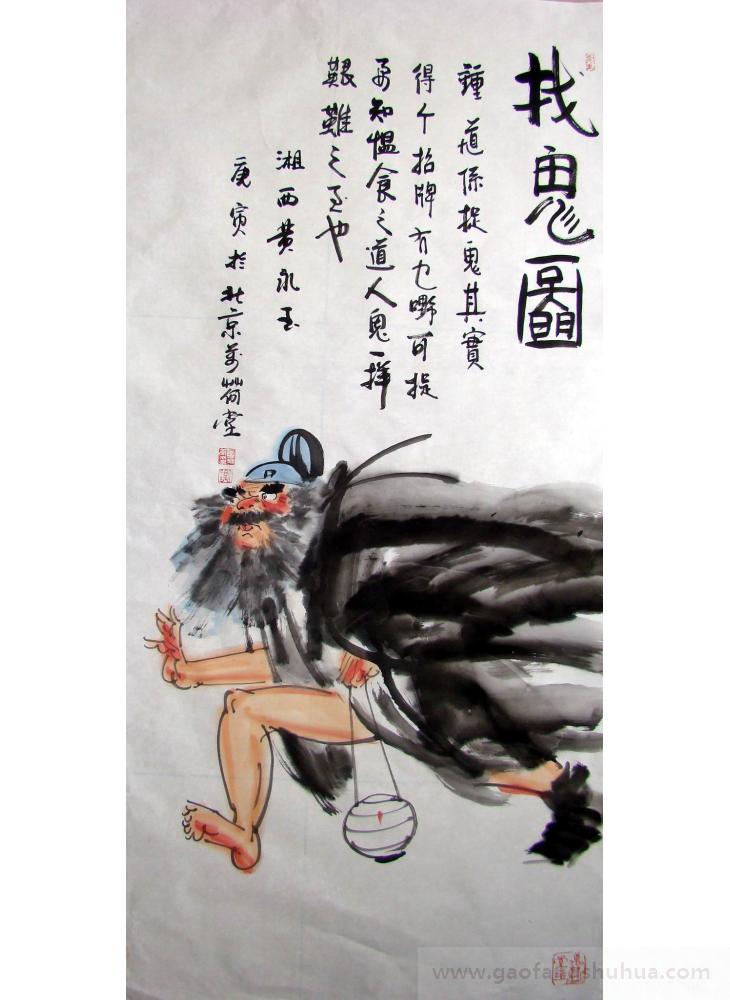 找鬼圖
鍾馗係捉鬼其實
得个招牌有乜嘢可捉
要知愠食之道人鬼一樣
艱難之至也
湘西黄永玉
庚寅於北京萬荷堂
www.gaofangshuhua.com